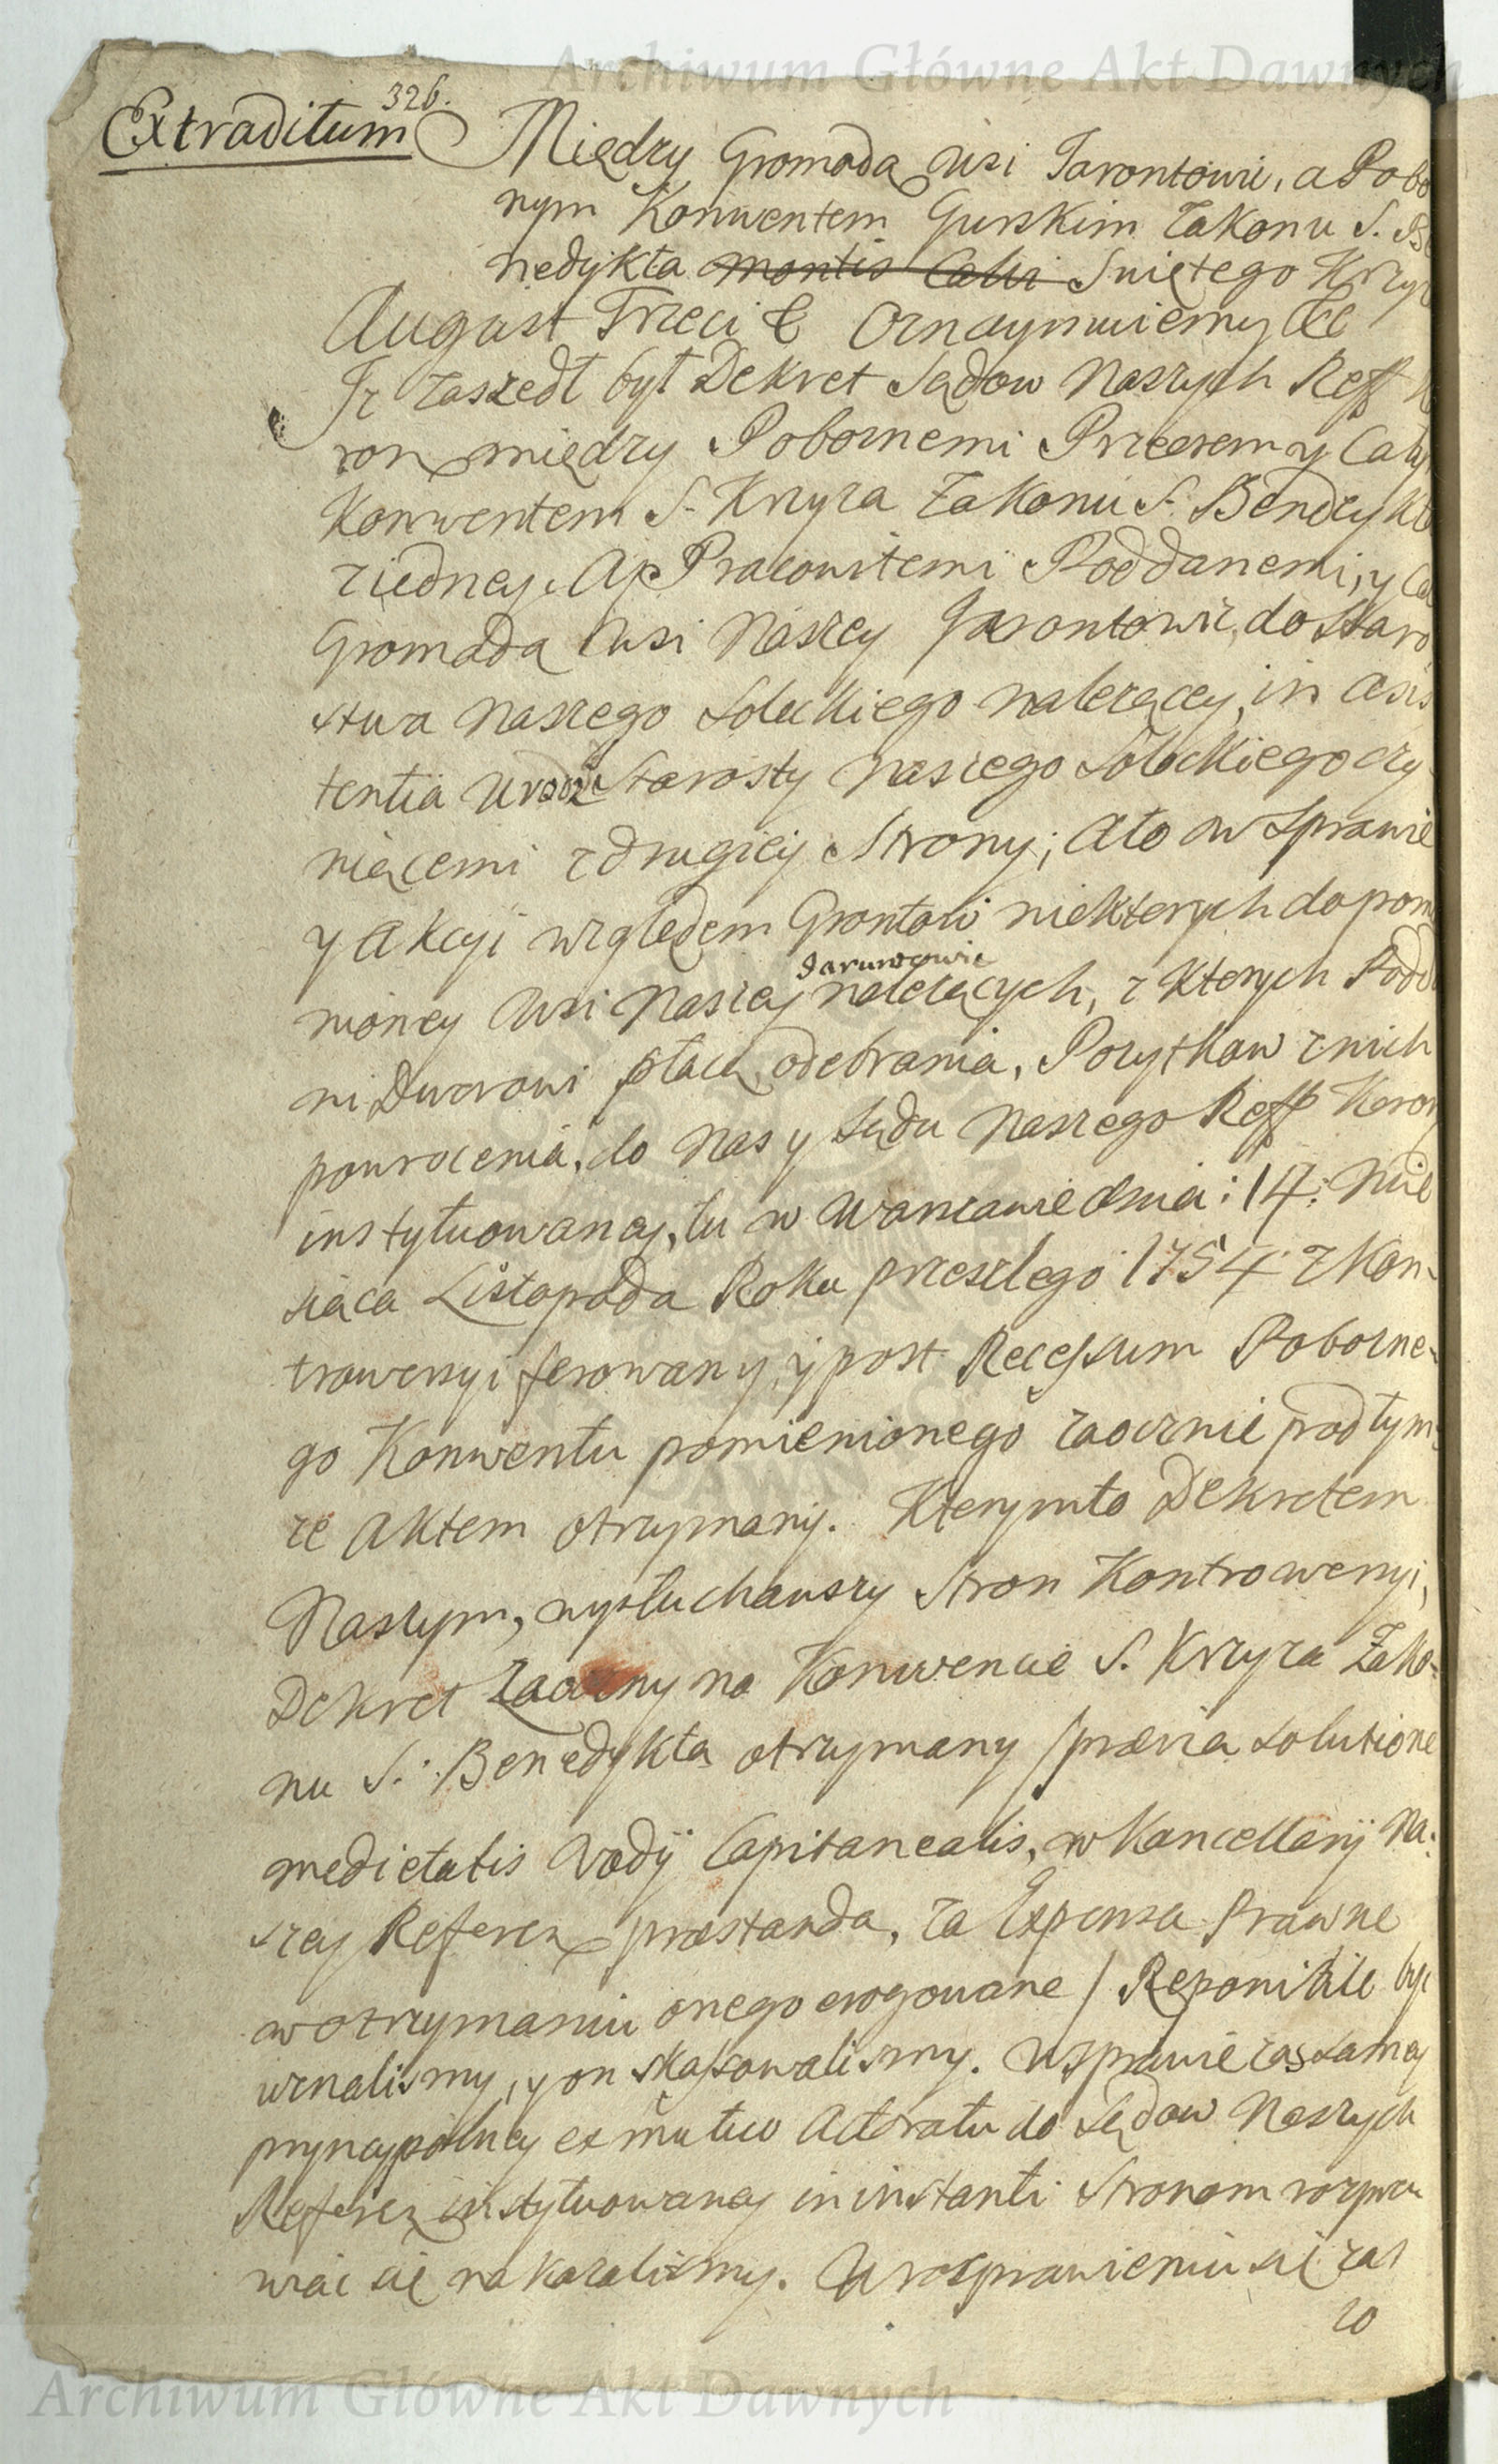 Archiwum Główne Akt Dawnych
326.
Extraditum
Między Gromadą wsi Jarontowic, a Pobo
nym Konwentem Gurskim Zakonu S. Be
nedykta montis Calvi Swiętego Krzy
August Trzeci &c Oznaymuiemy &c
Iz zaszedł był Dekret Sądow Naszych Reff K
ron między Pobornemi Przeorem y Cały
Konwentem S. Krzyza Zakonu S. Benedykta
z iedney. A Pracowitemi Poddanemi, y Ca
Gromadą wsi Naszey Jarontowic, do Staro
stwa Naszego Soleckiego nalezącey, in asis
tentia Urodz Starosty Naszego Soleckiego czy
niącemi z drugiey Strony; a to w Sprawie
y Akcyi względem Grontow niektorych do pom
nioney wsi Naszey nalezących, z ktorych Podda
Jaruntowic
ni Dworowi płacą, odebrania, Pozytkow z nich
powrocenia, do Nas y Sądu Naszego Reff Koron
instytuowaney, tu w Warszawie dnia: 14: Mie
siąca Listopada Roku przeszlego 1754 z Kon-
trowersyi ferowany, y post Recessum Poborne-
go Konwentu pomienionego zaocznie pod tym
ze Aktem otrzymany. Ktorymto Dekretem
Naszym, wysłuchawszy Stron Kontrowersyi,
Dekret Zaoczny na Konwencie S. Krzyza Zako-
nu S. Benedykta otrzymany / prævia solutione
medietatis Vadij Capitanealis, w Kancellaryi Na:
szey Referen præstanda, za Expensa Prawne
w otrzymaniu onego erogowane / Reponibile być
uznalismy, y on skassowalismy. W sprawie zas samey
pryncypalney ex motivo Actoratu do Sądow Naszych
Referen instytuowaney in instanti Stronom rozpra
wiać się nakazalismy. W rozprawieniu się zas
zo
Archiwum Główne Akt Dawnych